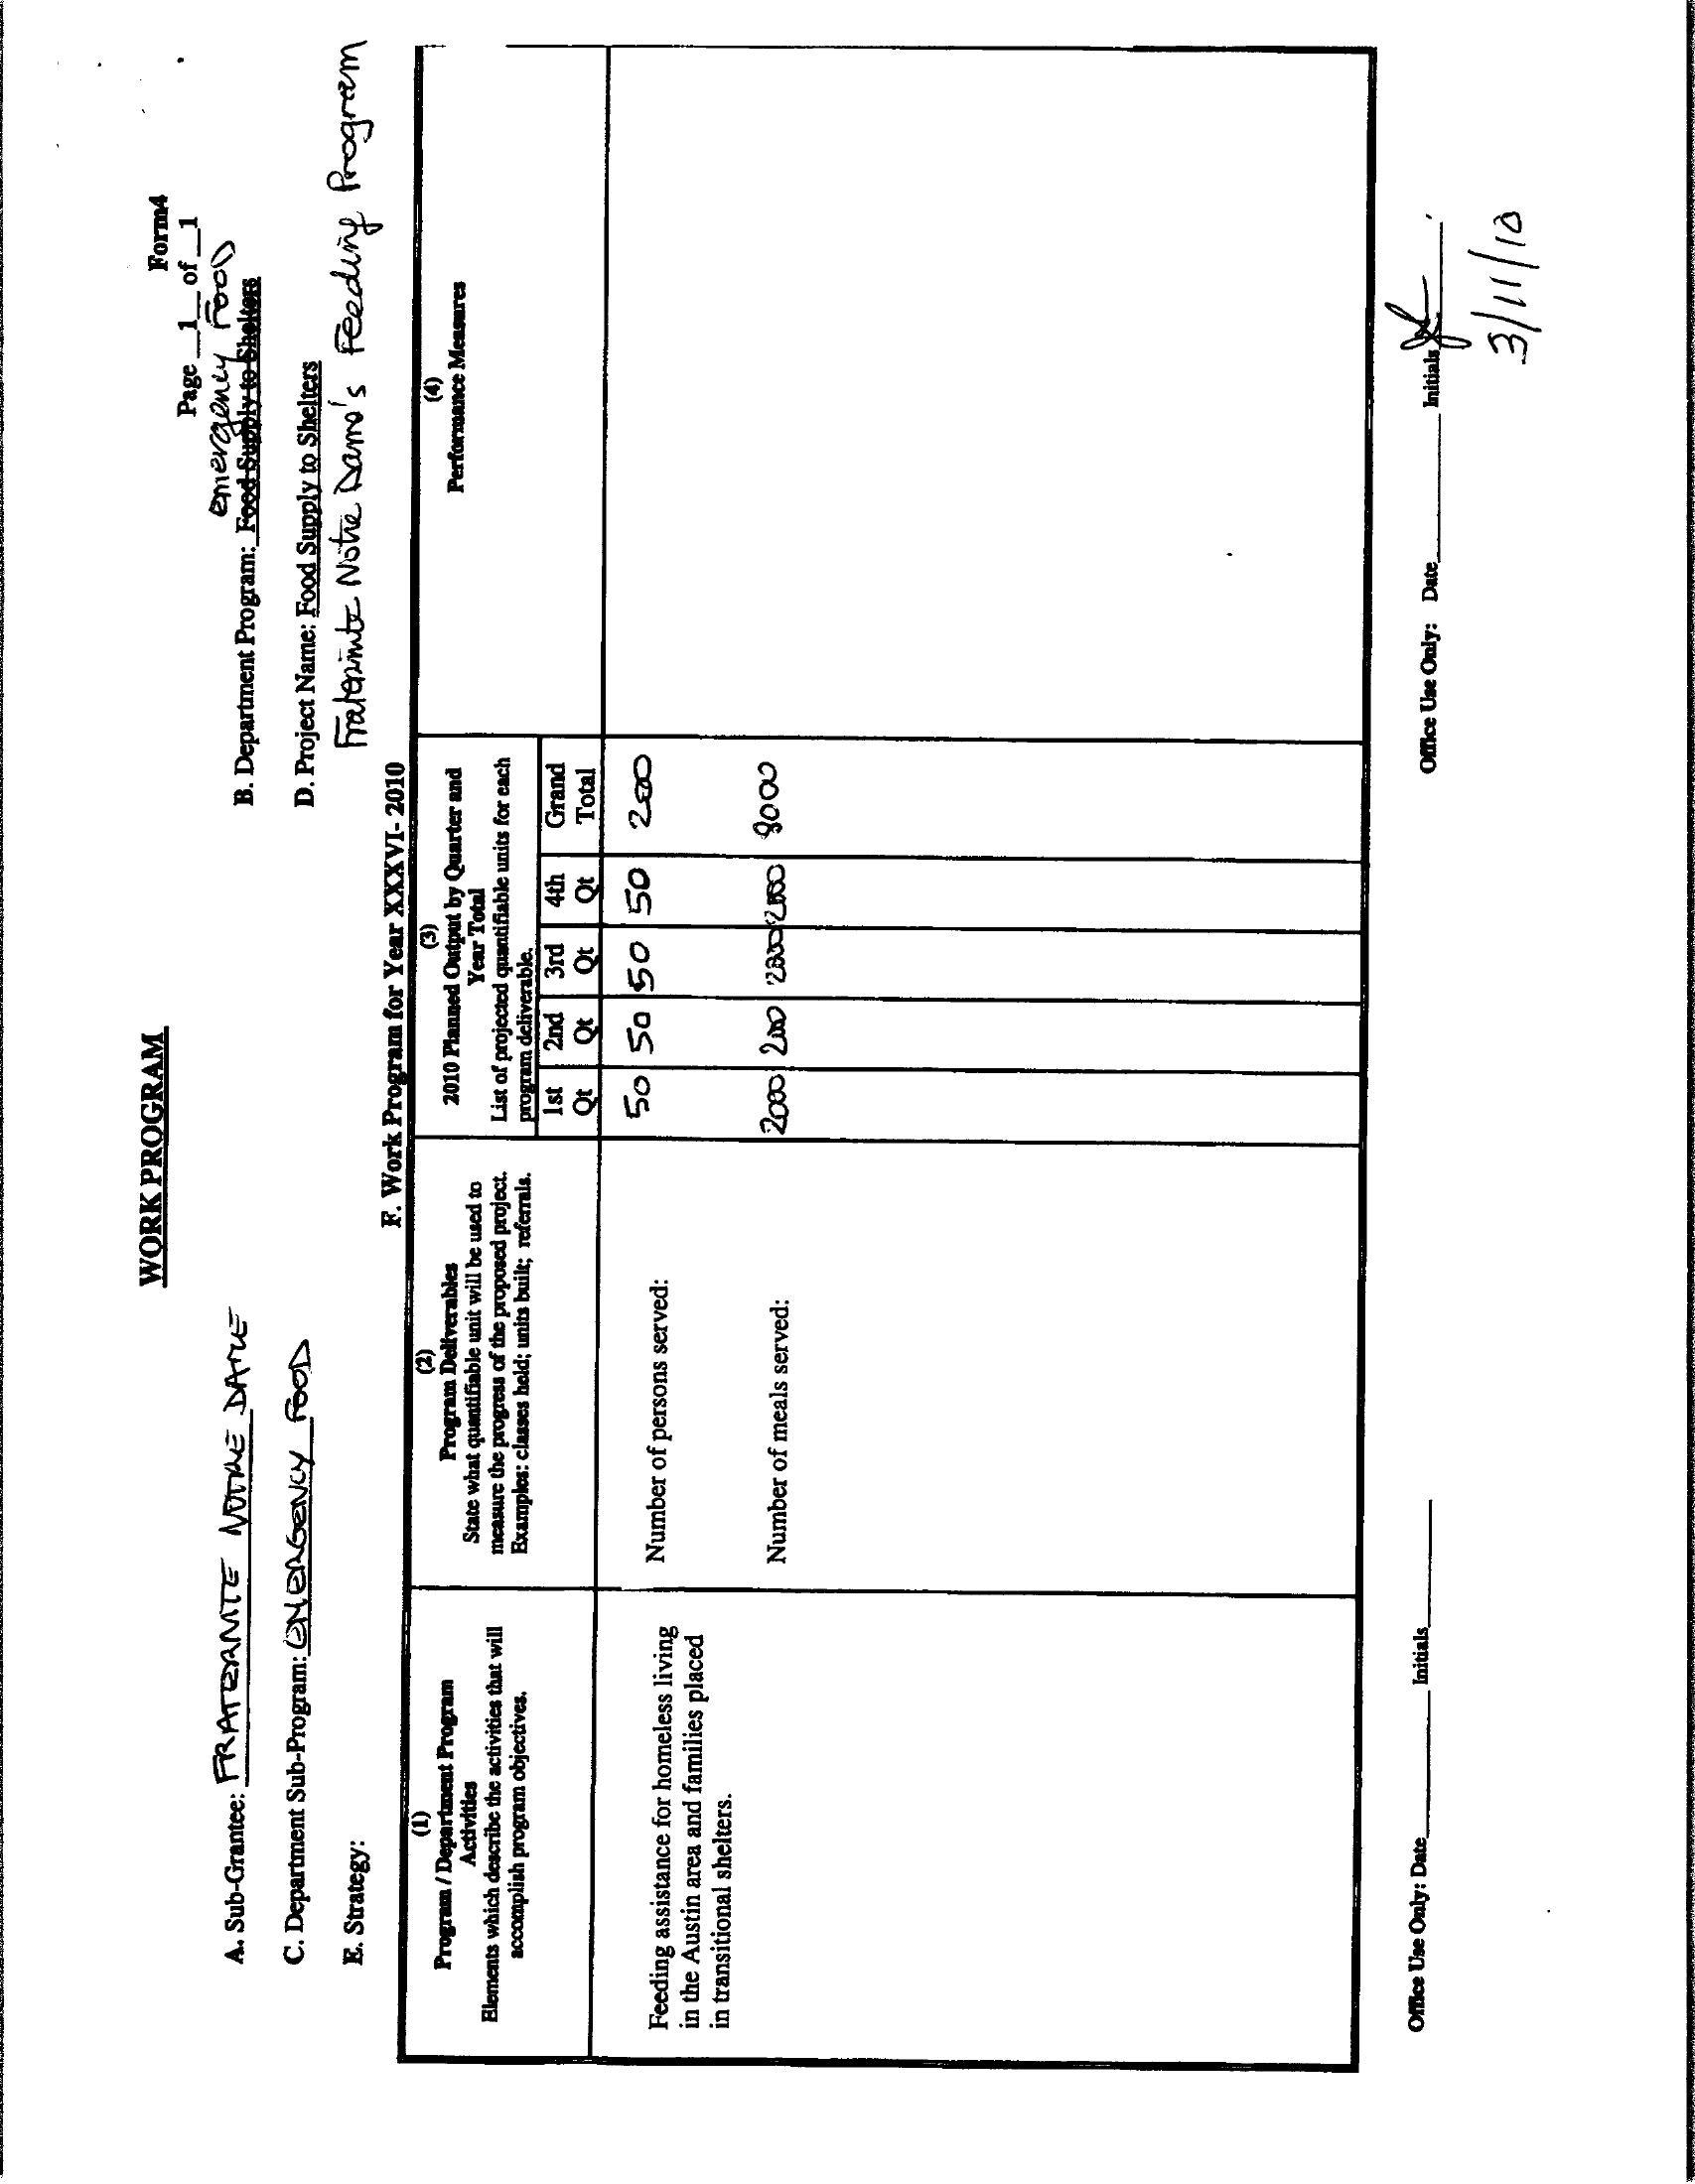 Form4
WORK PROGRAM
Page 1 of 1
emergency Food
A. Sub-Grantee: FRATERNITE NOTRE DAME
B. Department Program: Food Supply to Shelters
C. Department Sub-Program: EMERGENCY FOOD
D. Project Name: Food Supply to Shelters
Fraternite Notre Dame's Feeding Program
E. Strategy:
F. Work Program for Year XXXVI- 2010
(1)
Program / Department Program
Activities
Elements which describe the activities that will
accomplish program objectives.
(2)
Program Deliverables
State what quantifiable unit will be used to
measure the progress of the proposed project.
Examples: classes held; units built; referrals.
(3)
2010 Planned Output by Quarter and
Year Total
List of projected quantifiable units for each
program deliverable.
1st Qt 2nd Qt 3rd Qt 4th Qt Grand Total
(4)
Performance Measures
Feeding assistance for homeless living
in the Austin area and families placed
in transitional shelters.
Number of persons served: 50 50 50 50 200
Number of meals served: 2000 2000 8000
Office Use Only: Date Initials
Office Use Only: Date Initials
3/11/10